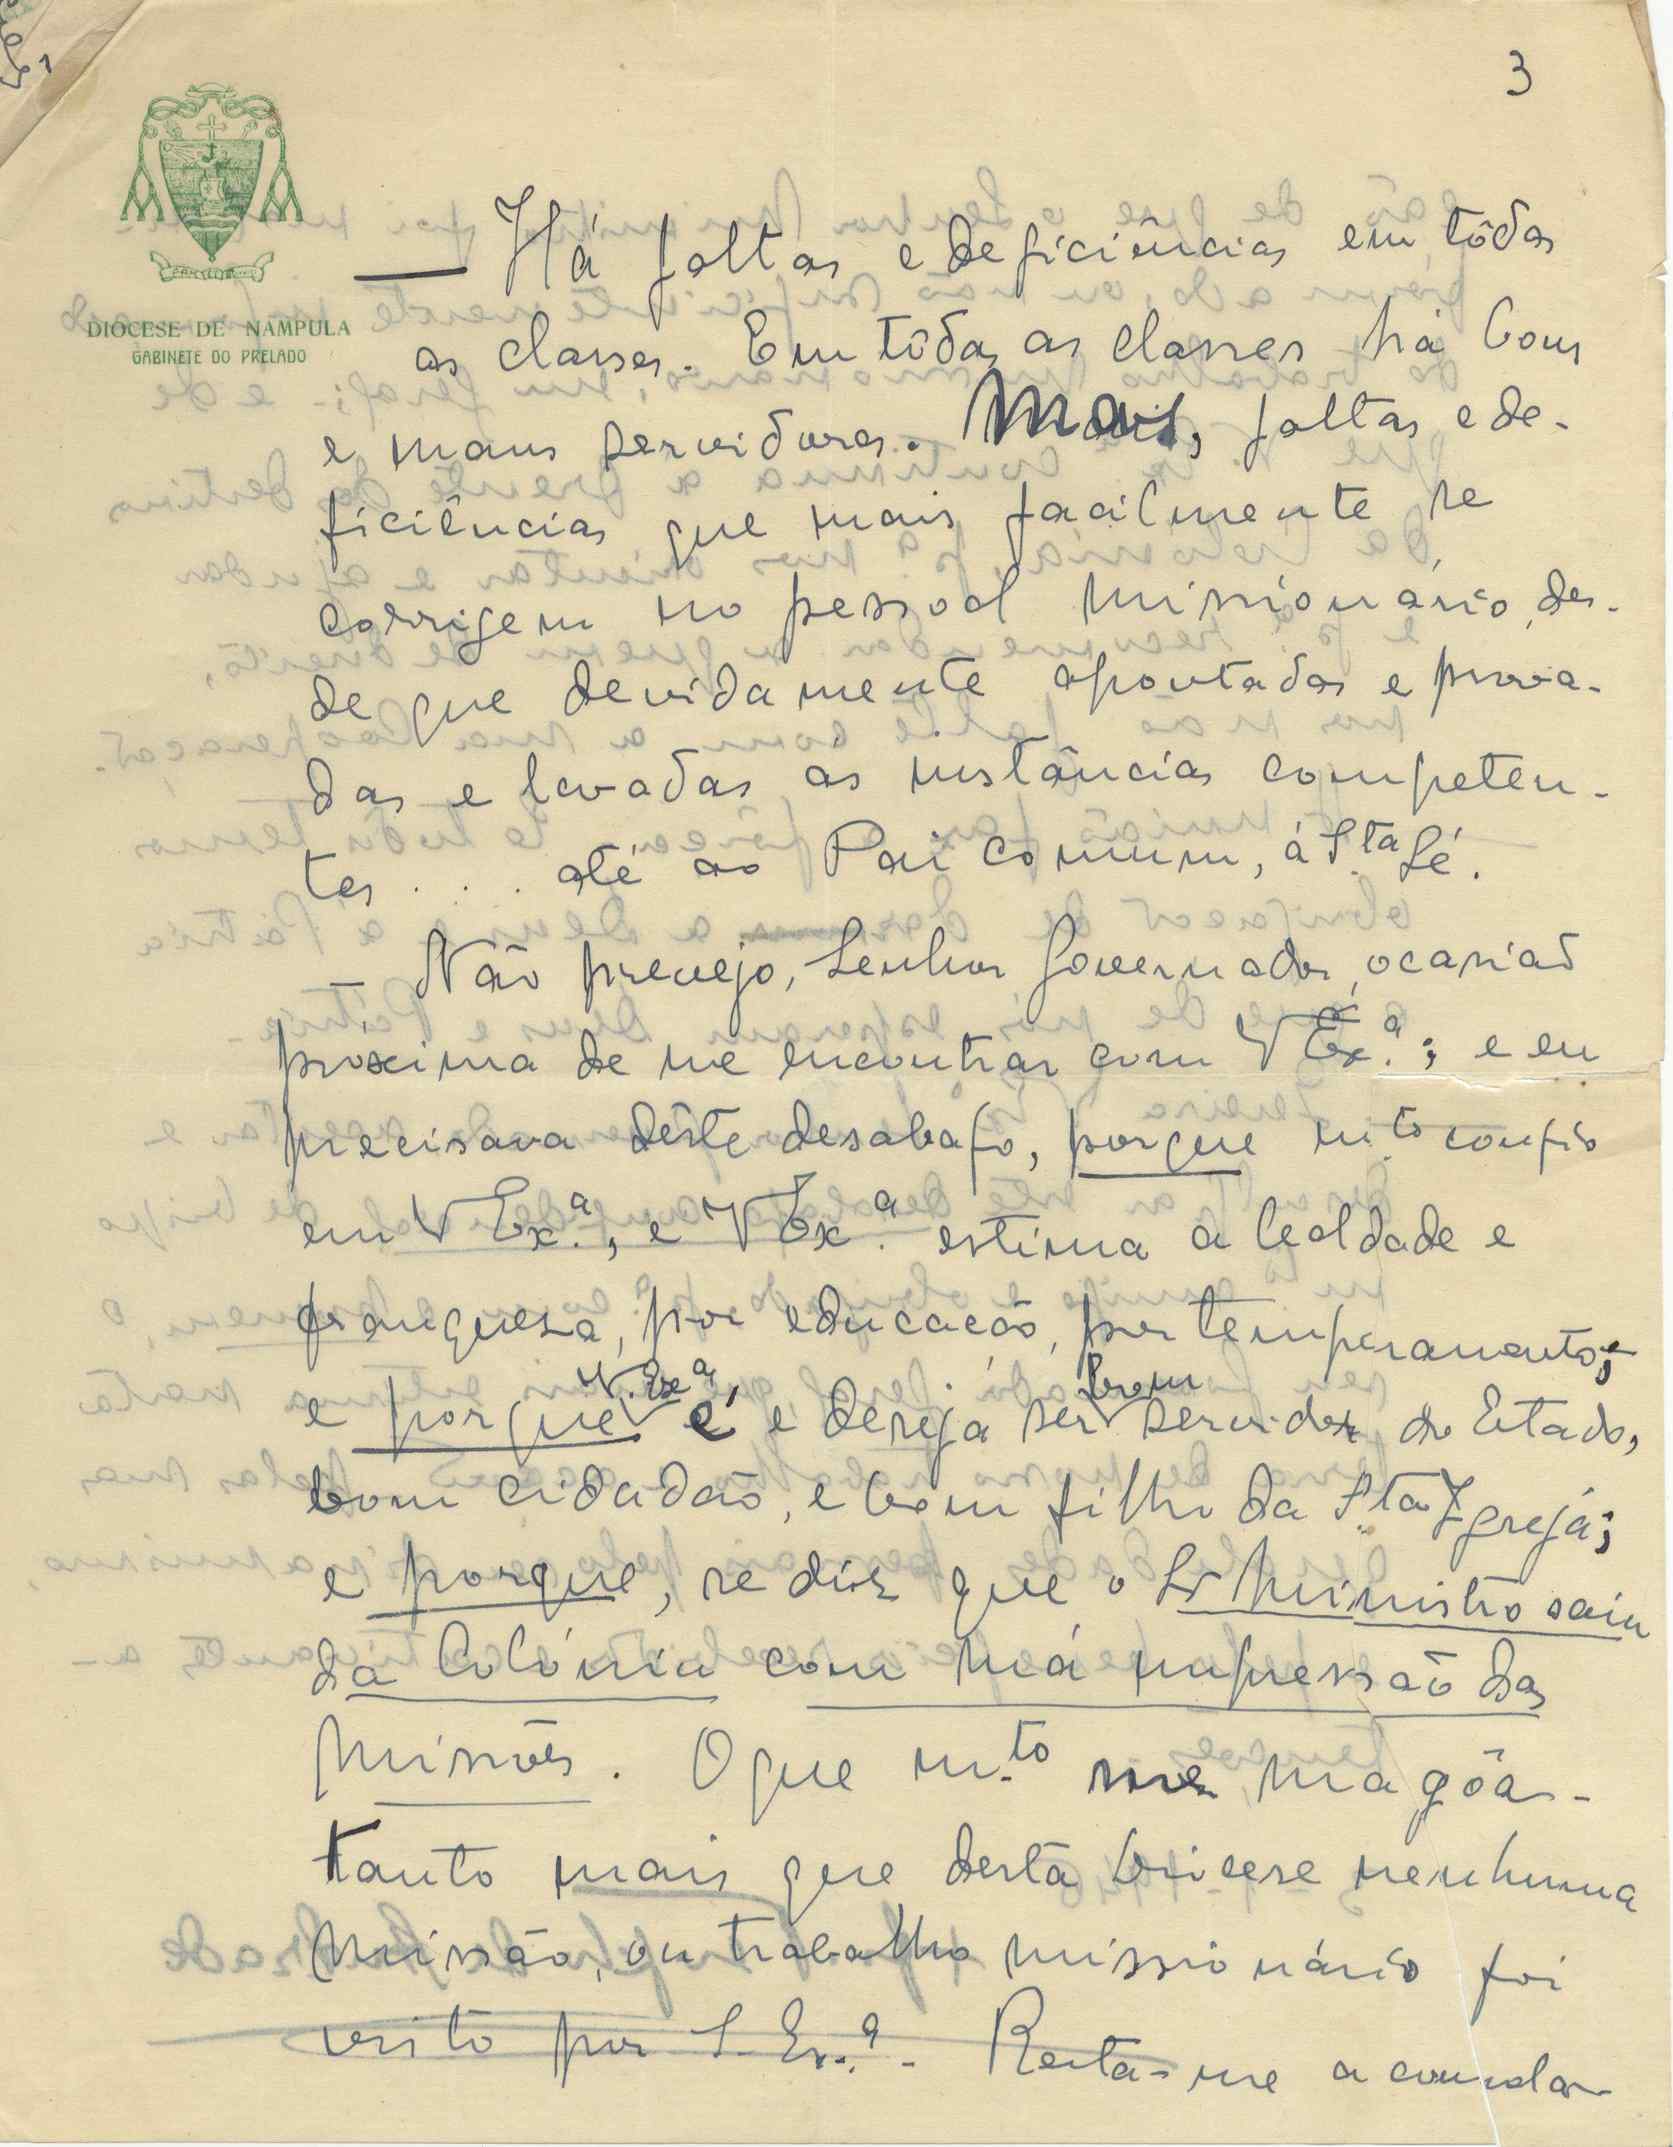 3
DIOCESE DE NAMPULA
GABINETE DO PRELADO
— Há faltas e deficiências em tôdas
as classes. Em tôdas as classes há bons
e maus servidores. Mas, faltas e de-
ficiências que mais facilmente se
corrigem no pessoal missionário, des-
de que devidamente apontadas e prova-
das e levadas as instâncias competen-
tes . . . até ao Pai comum, á S.ta Sé.
– Não prevejo, Senhor Governador, ocasião
proxima de me encontrar com V Ex.ª; e eu
precisava dêste desabafo, porque m.to confio
em V Ex.ª, e V Ex.ª estima a lealdade e
franqueza, por educação, por temperamento;
e porque V. Ex.ª é e deseja ser bom servidor do Estado,
bom cidadão, e bom filho da S.ta Igreja;
e porque, se diz que o Sr Ministro saiu
da Colónia com má impressão das
Missões. O que m.to me magôa-
tanto mais que desta Diocese nenhuma
Missão, ou trabalho missionário foi
visto por S. Ex.ª. Resta-me a consola-